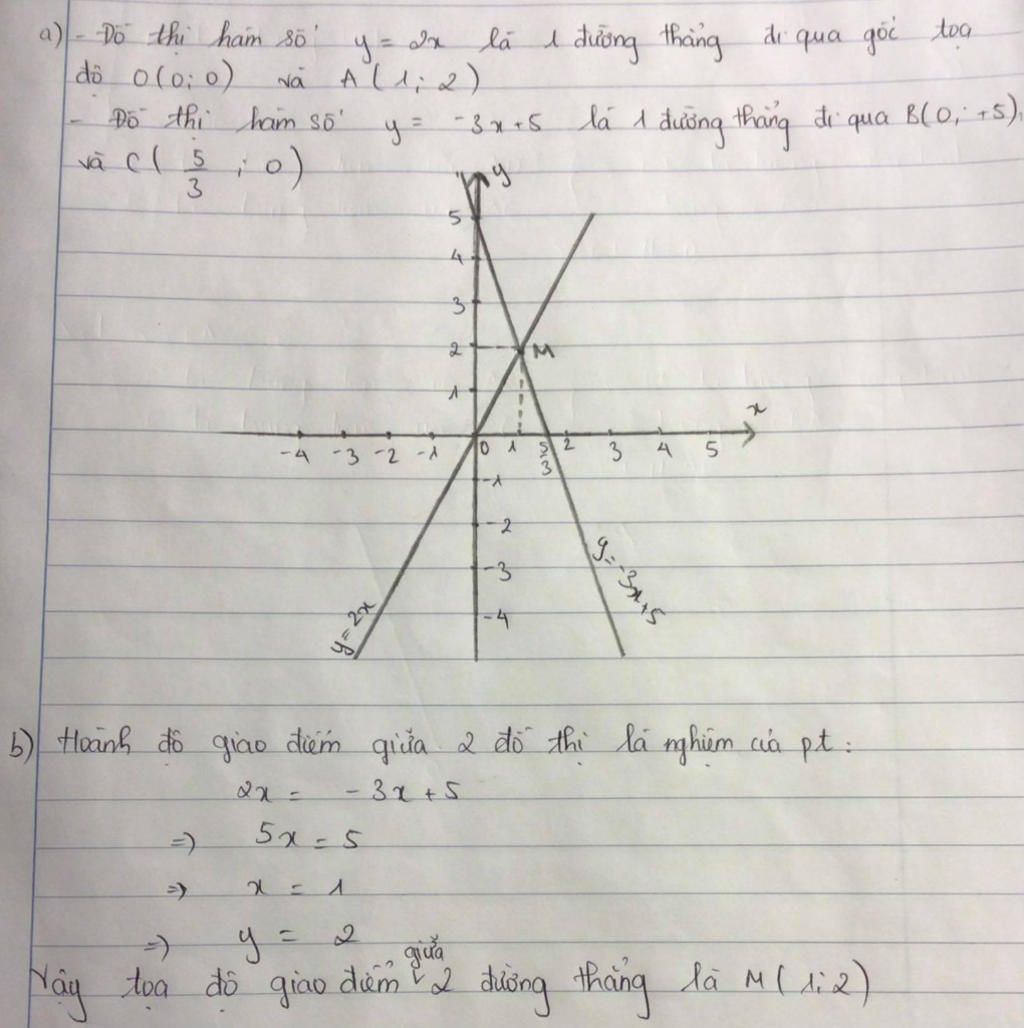 a) - Đồ thị hàm số y = 2x là 1 đường thẳng đi qua gốc toạ
độ O(0; 0) và A(1; 2)
- Đồ thị hàm số y = -3x+5 là 1 đường thẳng đi qua B(0; +5)
và C(5/3 ; 0)
y
5
4
3
2 M
1
x
-4 -3 -2 -1 0 1 5/3 2 3 4 5
-1
-2
-3
-4
y = -3x+5
y = 2x
b) Hoành độ giao điểm giữa 2 đồ thị là nghiệm của pt :
2x = -3x+5
=> 5x = 5
=> x = 1
=> y = 2
Vậy toạ độ giao điểm giữa 2 đường thẳng là M(1; 2)